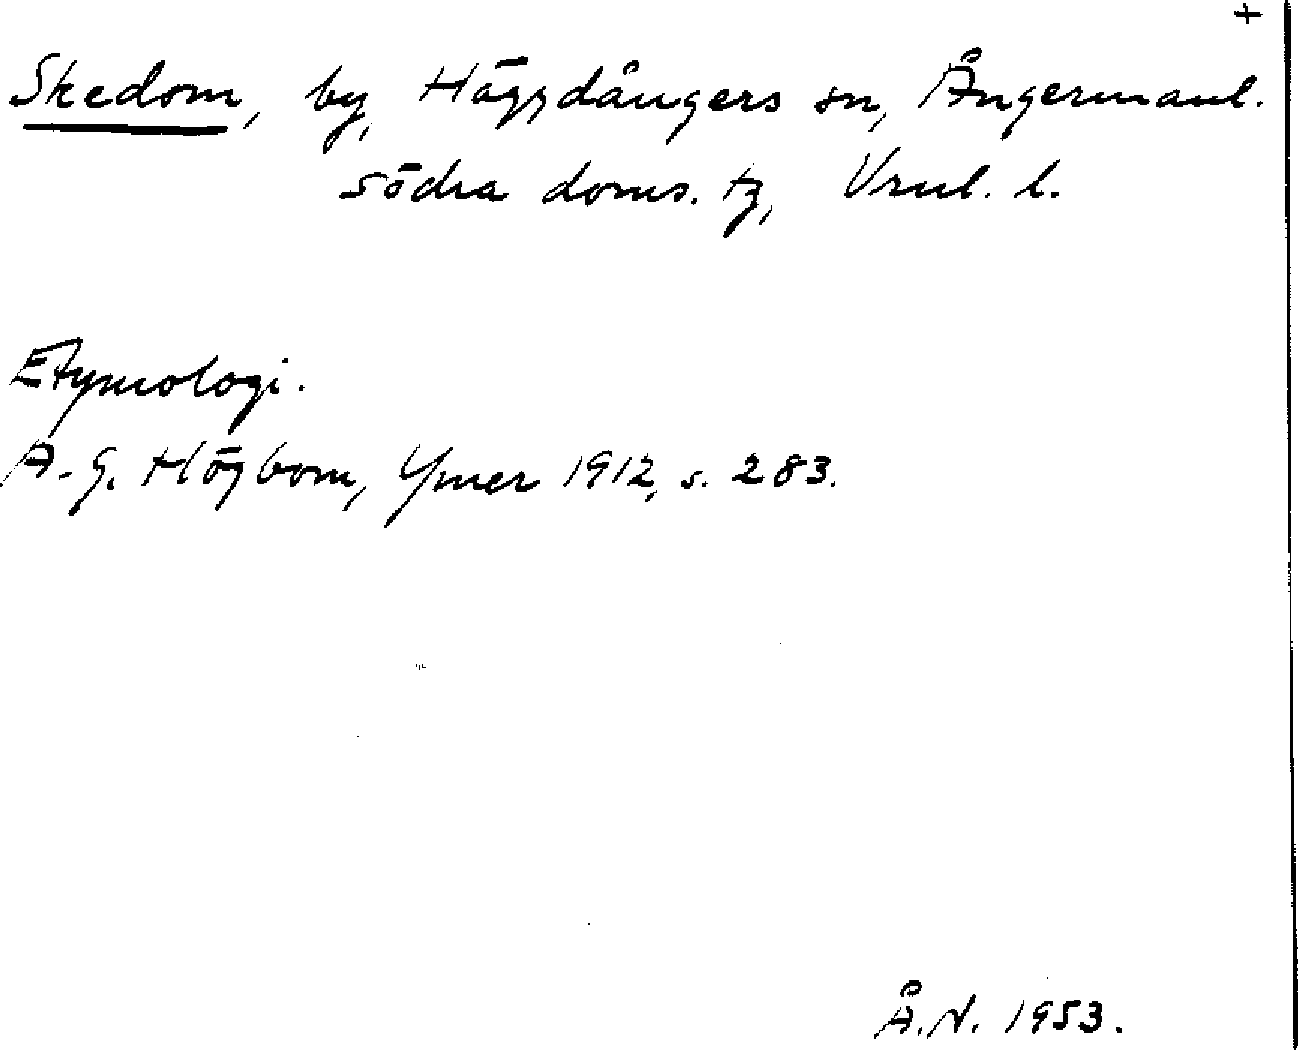 +
Skedom, by, Häggdångers sn, Ångermanl.
södra doms. tg, Vrnl. l.
Etymologi.
A.G. Högbom, Ymer 1912, s. 283.
Å.N. 1953.